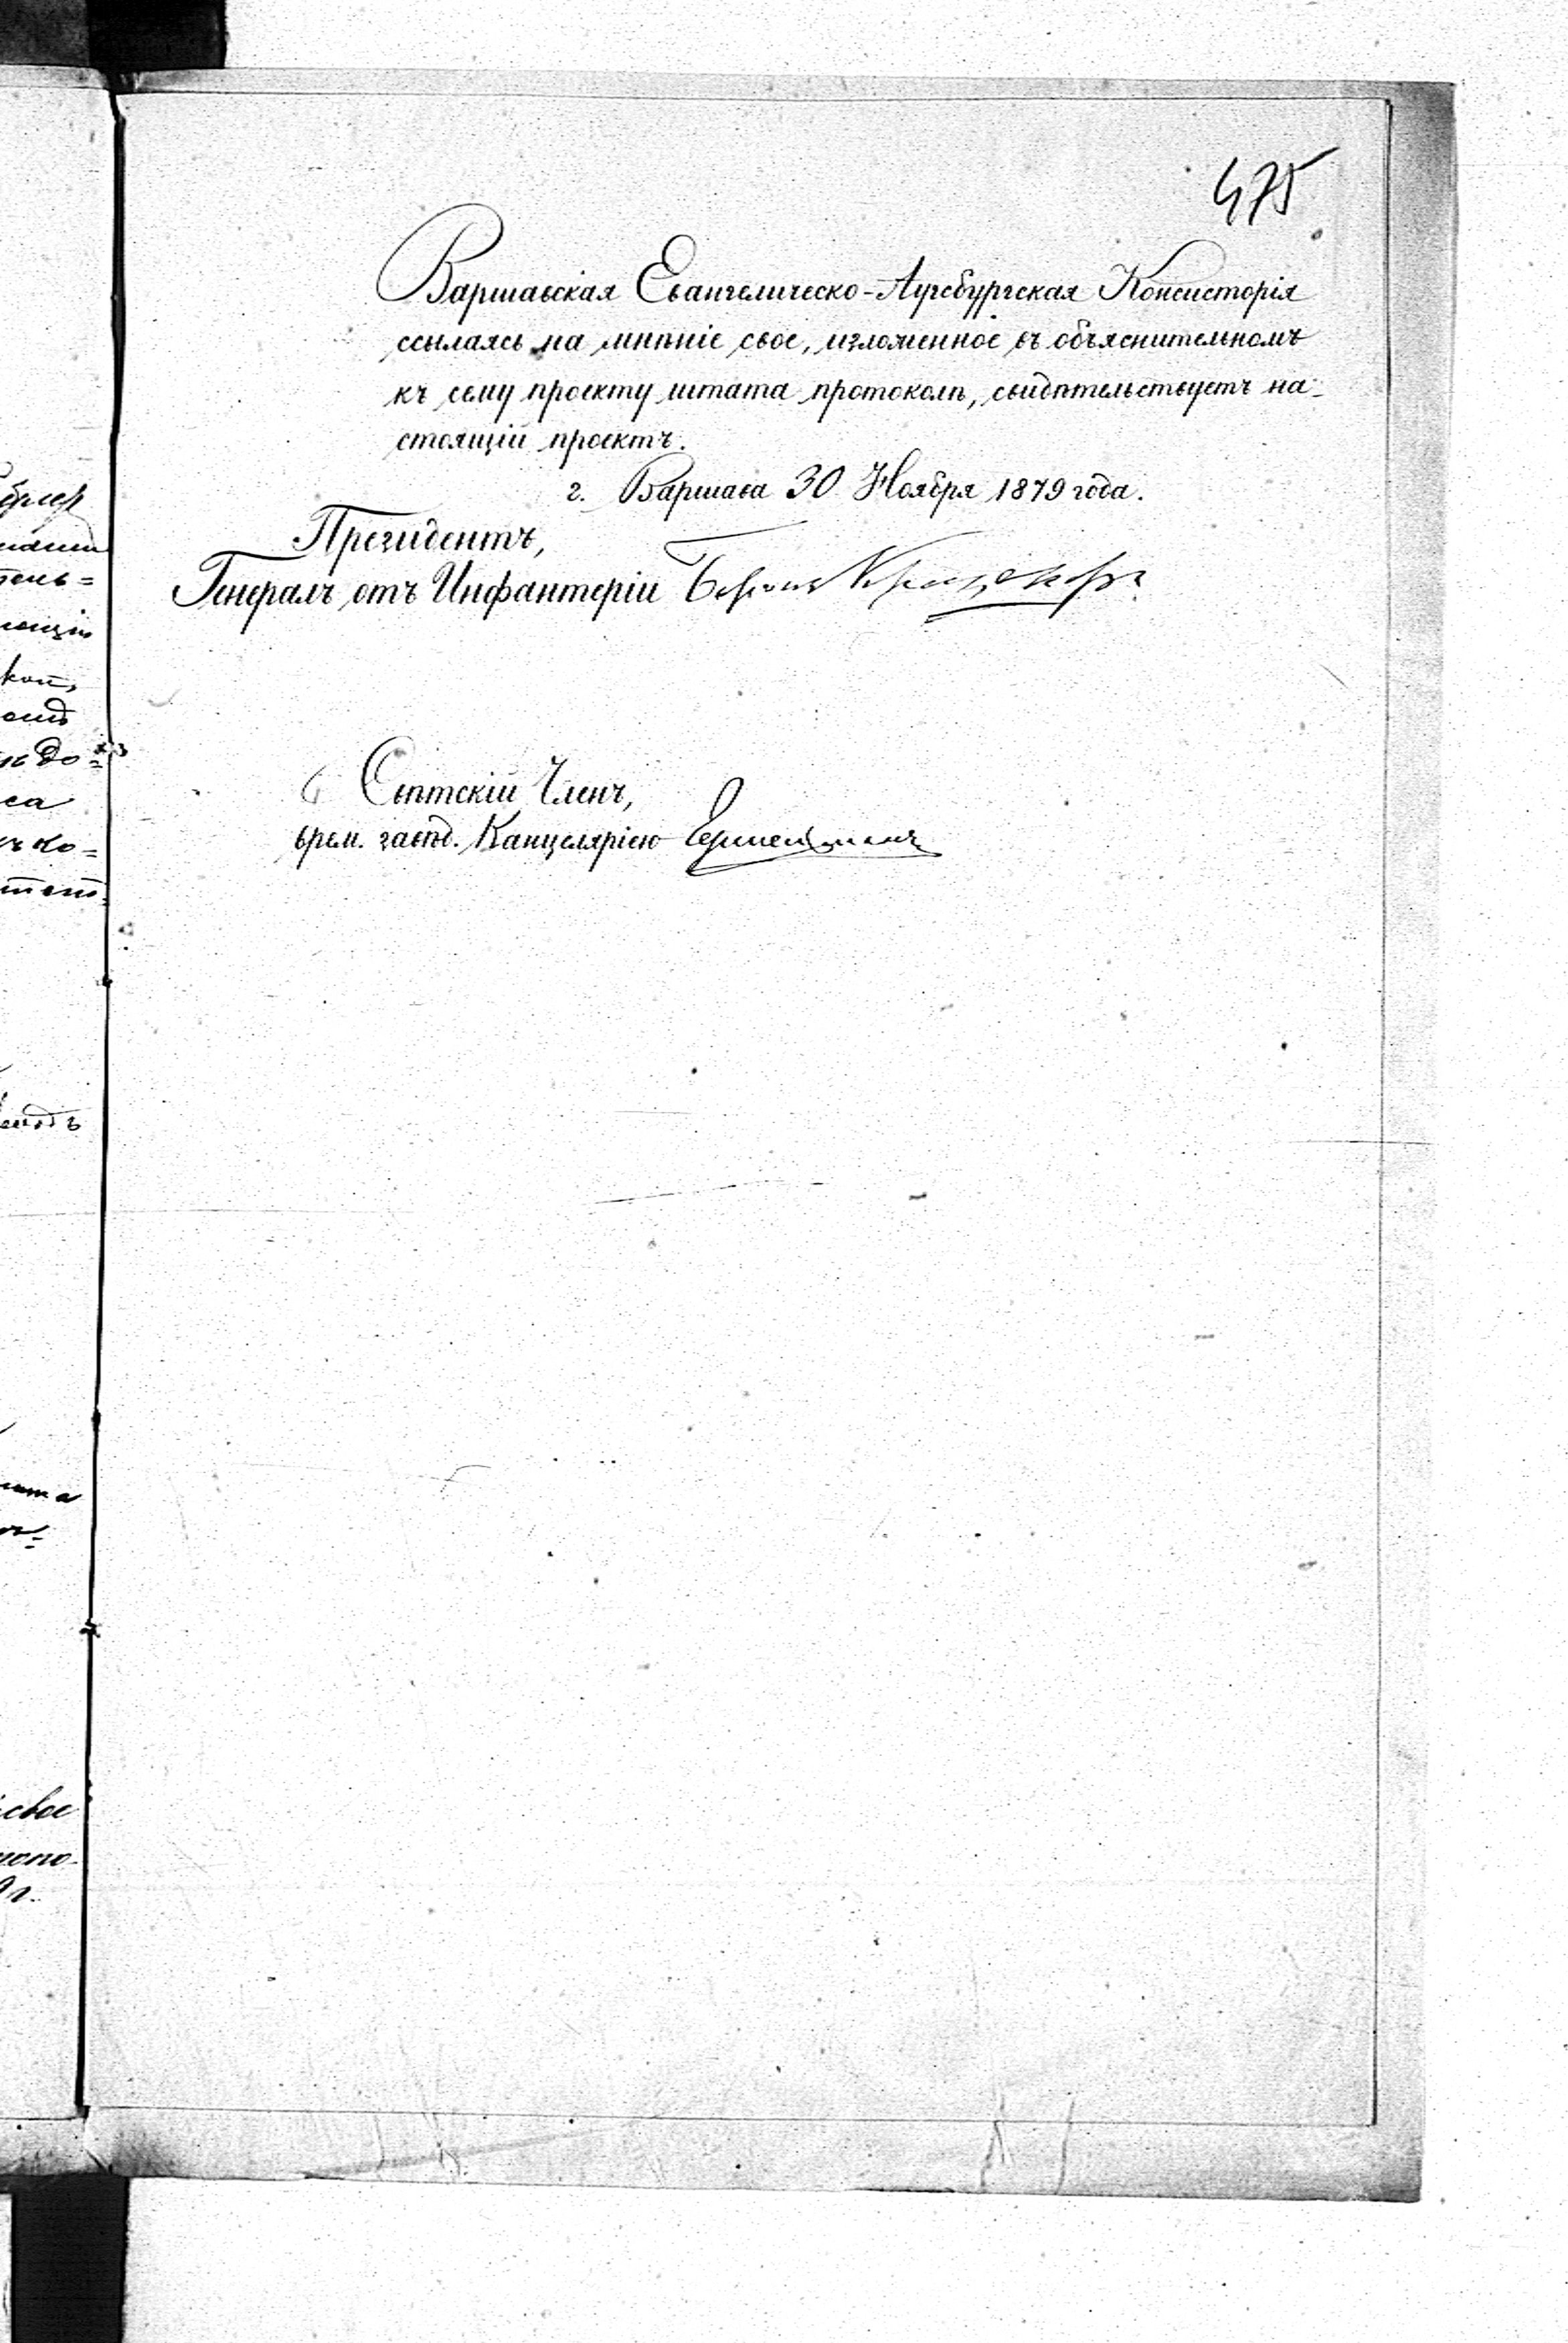 475
Варшавская Евангелическо-Аугсбургская Консисторія
ссылаясь на мнѣніе свое, изложенное въ объяснительномъ
къ сему проекту штата протоколѣ, свидѣтельствуетъ на-
стоящій проектъ.
г. Варшава 30 Ноября 1879 года.
Президентъ,
Генералъ отъ Инфантеріи Баронъ
Свѣтскій Членъ,
врем. завѣд. Канцеляріею
до=
са
ко=
свое